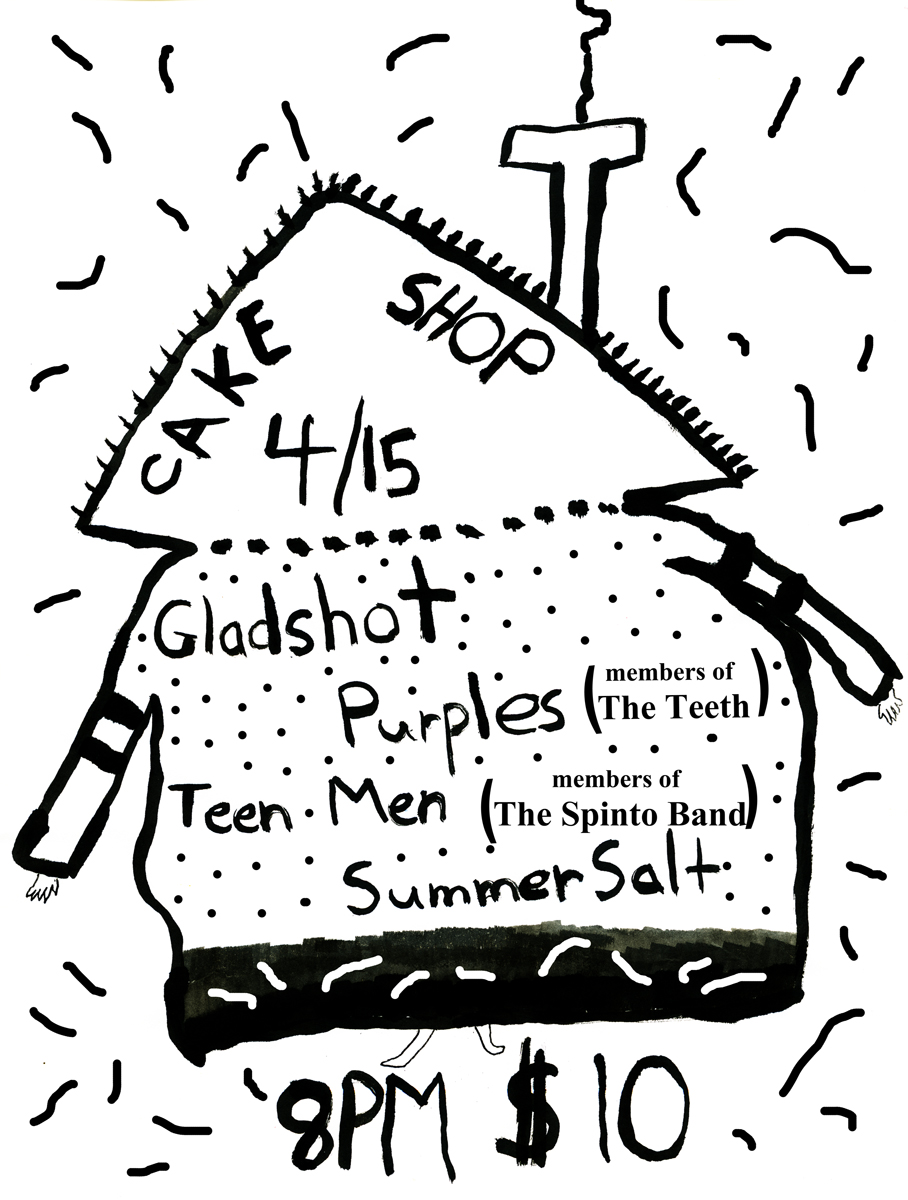 CAKE SHOP
4/15
Gladshot
Purples (members of The Teeth)
Teen Men (members of The Spinto Band)
Summer Salt
8PM $10